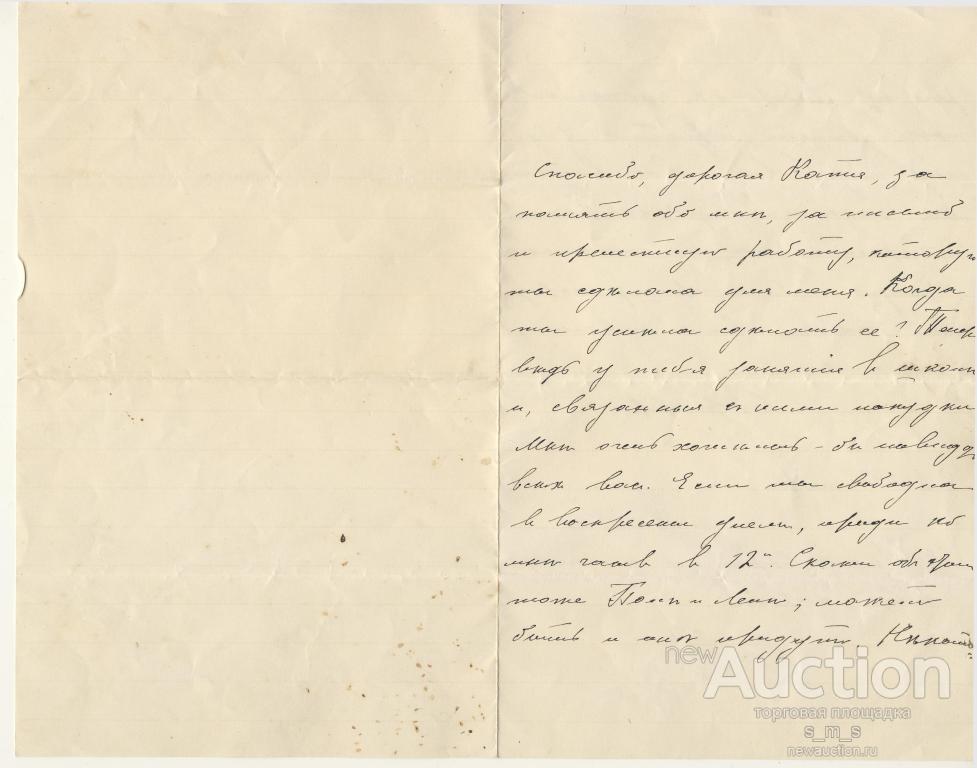 Спасибо, дорогая Катя, за
память обо мнѣ, за письмо
и прелестную работу, которую
ты сдѣлала для меня. Когда
ты успѣла сдѣлать ее? Тепер
вѣдь у тебя занятія в школѣ
и, связанныя съ ними поѣздки
Мнѣ очень хотѣлось-бы повидать
всѣхъ вас. Если ты свободна
в воскресенье днем, приди ко
мнѣ часов в 12ъ. Скажи об этом
тоже и Ленѣ; можетъ
быть и онѣ придутъ.
newAuction
торговая площадка
s_m_s
newauction.ru